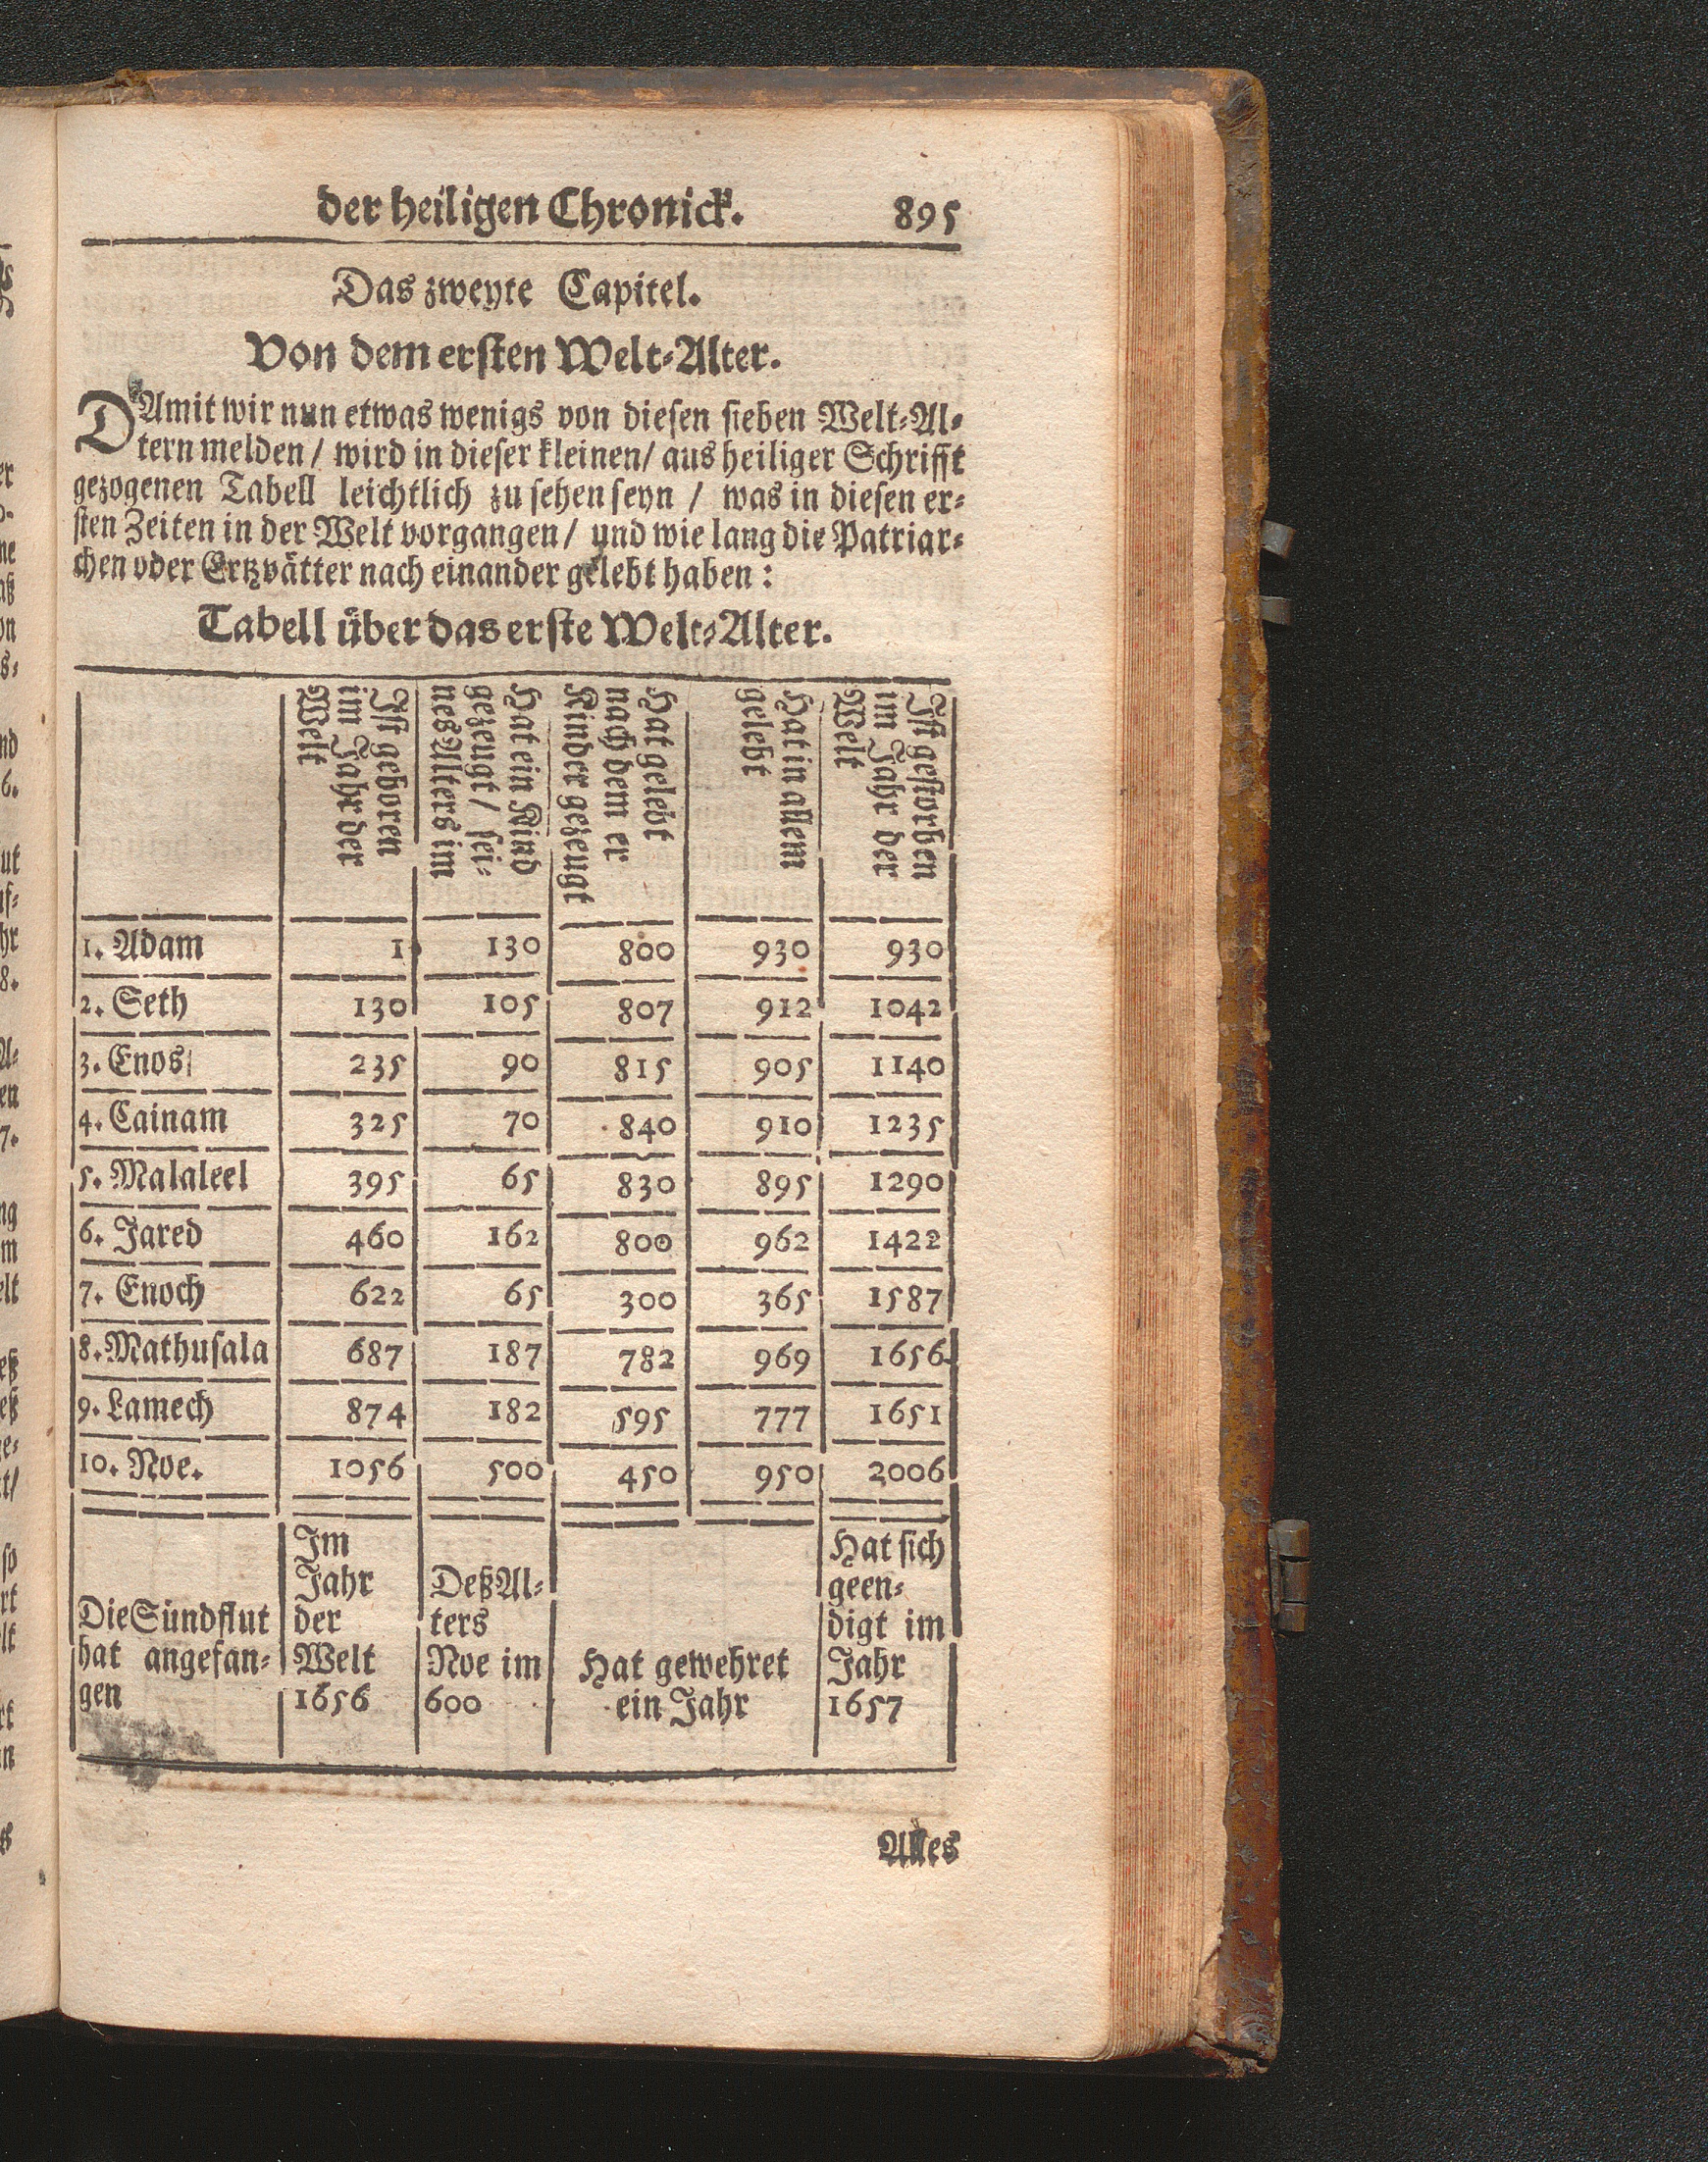 der heiligen Chronick. 895
Das zweyte Capitel.
Von dem ersten Welt-Alter.
DAmit wir nun etwas wenigs von diesen sieben Welt-Al-
tern melden / wird in dieser kleinen / aus heiliger Schrifft
gezogenen Tabell leichtlich zu sehen seyn / was in diesen er-
sten Zeiten in der Welt vorgangen / und wie lang die Patriar-
chen oder Ertzvätter nach einander gelebt haben :
Tabell über das erste Welt-Alter.
Ist geboren
im Jahr der
Welt
Hat ein Kind
gezeugt / sei-
nes Alters im
Hat gelebt
nach dem er
Kinder gezeugt
Hat in allem
gelebt
Ist gestorben
im Jahr der
Welt
1. Adam 1 130 800 930 930
2. Seth 130 105 807 912 1042
3. Enos 235 90 815 905 1140
4. Cainam 325 70 840 910 1235
5. Malaleel 395 65 830 895 1290
6. Jared 460 162 800 962 1422
7. Enoch 622 65 300 365 1587
8. Mathusala 687 187 782 969 1656
9. Lamech 874 182 595 777 1651
10. Noe. 1056 500 450 950 2006
Die Sündflut
hat angefan-
gen
Im
Jahr
der
Welt
1656
Deß Al-
ters
Noe im
600
Hat gewehret
ein Jahr
Hat sich
geen-
digt im
Jahr
1657
Alles